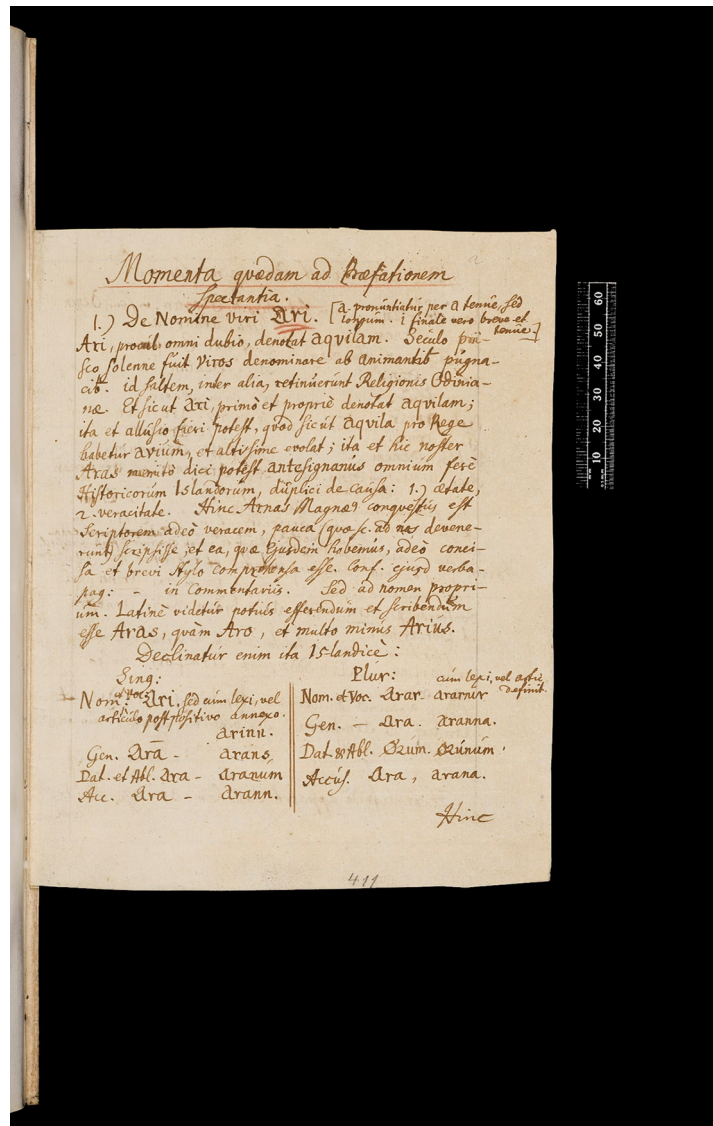 Momenta qvædam ad Præfationem
Spectantia.
1.) De Nomine viri Ari. [a pronúntiatur per a tenúe, sed
longúm. i finale vero breve et
tenúe.]
Ari, procúl omni dubio, denotat aqvilam. Seculo pri-
sco solenne fúit viros denominare ab animantib9 púgna-
cib9. id saltem, inter alia, retinúerúnt Religionis Odinia-
næ. Et sicut Ari, primò et propriè denotat aqvilam;
ita et allúsio fieri potest, qvod sicút aqvila pro Rege
habetúr aviúm, et altissime evolat; ita et hic noster
Aras meritò dici potest antesignanus omnium ferè
Historicorum Islandorum, dúplici de caúsa: 1.) ætate,
2. veracitate. Hinc Arnas Magnæ9 conqvestús est
Scriptorem adeò veracem, pauca (qvæ sc. ad nos devene-
rúnt) scripsisse; et ea, qvæ Ejúsdem habemús, adeò conci-
sa et brevi stylo comprehensa esse. Conf. ejúsd verba
pag: - in Commentariis. Sed ad nomen propri-
úm. Latinè videtúr potiús efferendúm et scribendúm
esse Aras, qvàm Aro, et multo minús Ariús.
Declinatúr enim ita Islandicè:
Sing:
Nom: et Voc: Ari. sed cúm lexi, vel
articúlo postpositivo annexo.
arinn.
Gen. Ara - arans
Dat. et Abl. Ara - aranúm
Acc. Ara - arann.
Plur: cúm lexi, vel artic.
definit.
Nom. et Voc. Arar - ararnir
Gen. - Ara. aranna.
Dat & Abl. Ørum. ørúnúm.
Accús. Ara, arana.
Hinc
411
10 20 30 40 50 60